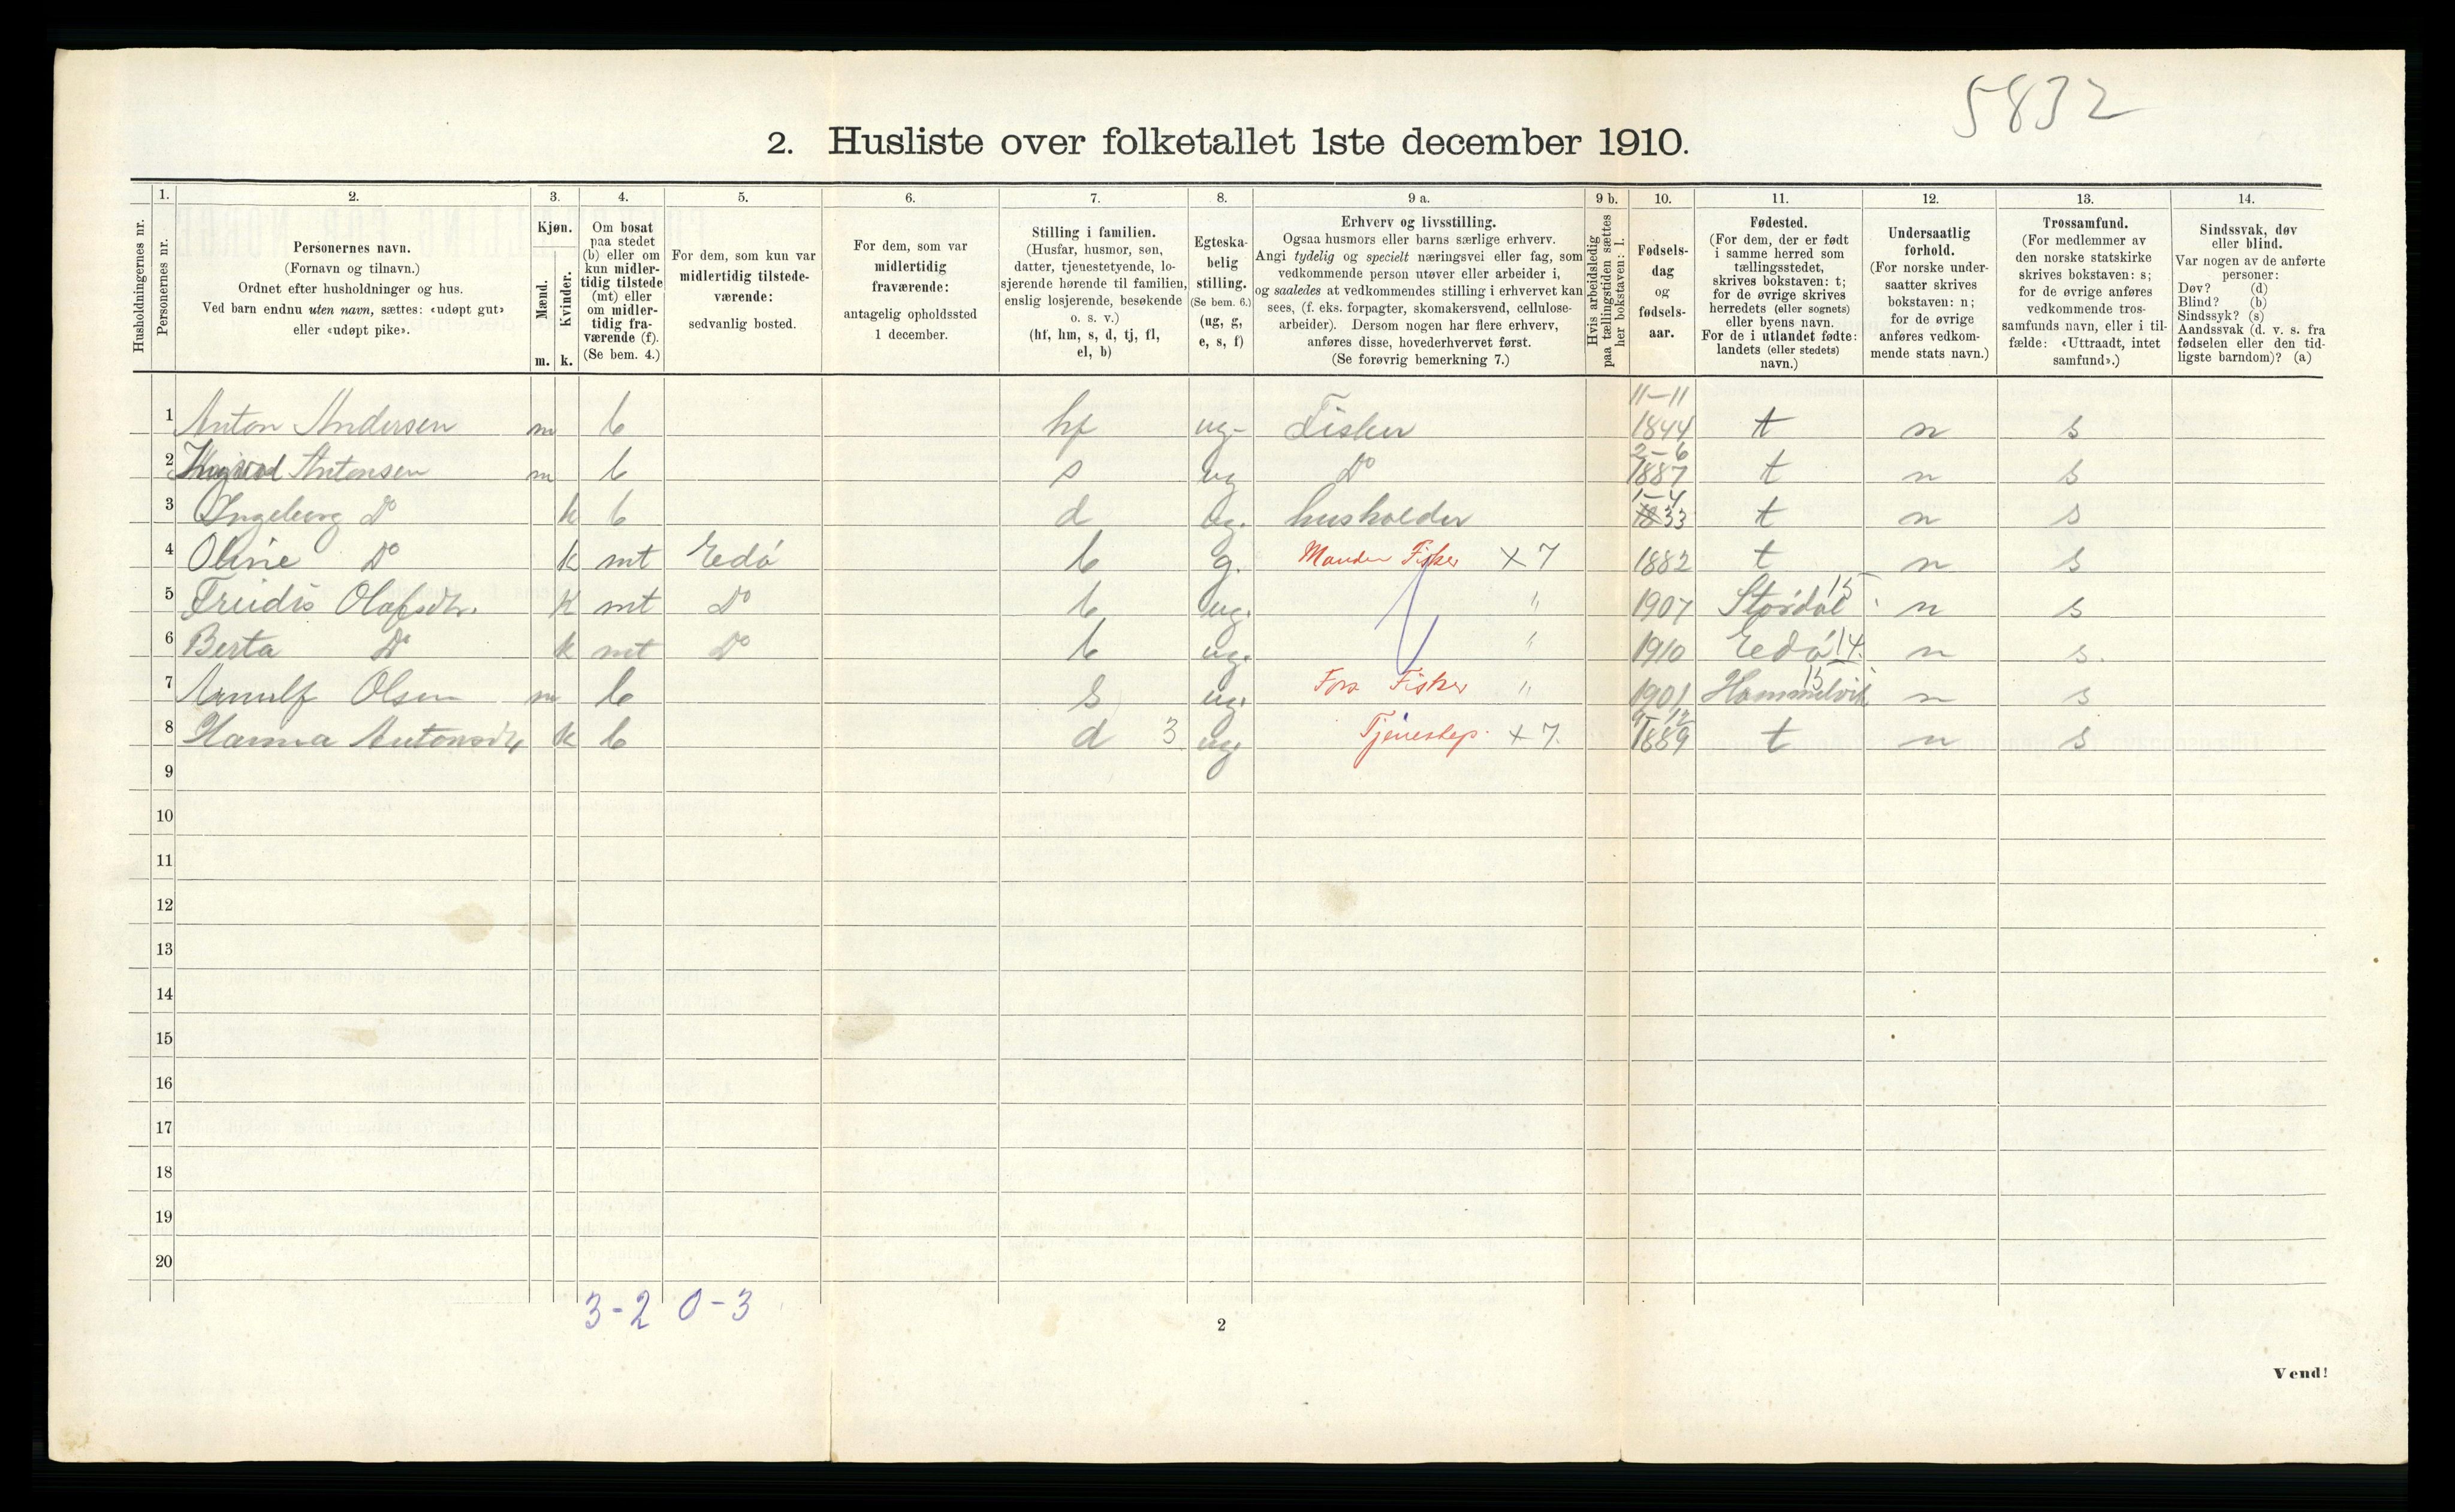 5832
2. Husliste over folketallet 1ste december 1910.
Husholdningernes nr.
1. Personernes nr.
2. Personernes navn.
(Fornavn og tilnavn.)
Ordnet efter husholdninger og hus.
Ved barn endnu uten navn, sættes: «udøpt gut»
eller «udøpt pike».
3. Kjøn.
Mænd. m.
Kvinder. k.
4. Om bosat
paa stedet
(b) eller om
kun midler-
tidig tilstede
(mt) eller
om midler-
tidig fra-
værende (f).
(Se bem. 4.)
5. For dem, som kun var
midlertidig tilstede-
værende:
sedvanlig bosted.
6. For dem, som var
midlertidig
fraværende:
antagelig opholdssted
1 december.
7. Stilling i familien.
(Husfar, husmor, søn,
datter, tjenestetyende, lo-
sjerende hørende til familien,
enslig losjerende, besøkende
o. s. v.)
(hf, hm, s, d, tj, fl,
el, b)
8. Egteska-
belig
stilling.
(Se bem. 6.)
(ug, g,
e, s, f)
9 a. Erhverv og livsstilling.
Ogsaa husmors eller barns særlige erhverv.
Angi tydelig og specielt næringsvei eller fag, som
vedkommende person utøver eller arbeider i,
og saaledes at vedkommendes stilling i erhvervet kan
sees, (f. eks. forpagter, skomakersvend, cellulose-
arbeider). Dersom nogen har flere erhverv,
anføres disse, hovederhvervet først.
(Se forøvrig bemerkning 7.)
9 b. Hvis arbeidsledig
paa tællingstiden sættes
her bokstaven: l.
10. Fødsels-
dag
og
fødsels-
aar.
11. Fødested.
(For dem, der er født
i samme herred som
tællingsstedet,
skrives bokstaven: t;
for de øvrige skrives
herredets (eller sognets)
eller byens navn.
For de i utlandet fødte:
landets (eller stedets)
navn.)
12. Undersaatlig
forhold.
(For norske under-
saatter skrives
bokstaven: n;
for de øvrige
anføres vedkom-
mende stats navn.)
13. Trossamfund.
(For medlemmer av
den norske statskirke
skrives bokstaven: s;
for de øvrige anføres
vedkommende tros-
samfunds navn, eller i til-
fælde: «Uttraadt, intet
samfund».)
14. Sindssvak, døv
eller blind.
Var nogen av de anførte
personer:
Døv? (d)
Blind? (b)
Sindssyk? (s)
Aandssvak (d. v. s. fra
fødselen eller den tid-
ligste barndom)? (a)
1 Anton Andersen m b hf ug- Fisker 11-11 1844 t n s
2 Antonsen m b s ug Do 2-6 1887 t n s
3 Ingeborg Do k b d ug. husholder 1-4 33 t n s
4 Oline Do k mt Edö b g. Manden Fisker x7 1882 t n s
5 Olafsdtr. k mt Do b ug. " 1907 Stördal 15 n s
6 Berta Do k mt Do b ug. " 1910 Edö 14. n s.
7 Arnulf Olsen m b s ug. Fors Fisker " 1901 Hommelvik 15 n s
8 Hanna Antonsdtr k b d 3 ug Tjenestep. x7. 9-12 1889 t n s
9
10
11
12
13
14
15
16
17
18
19
20
3-2 0-3
2
Vend!